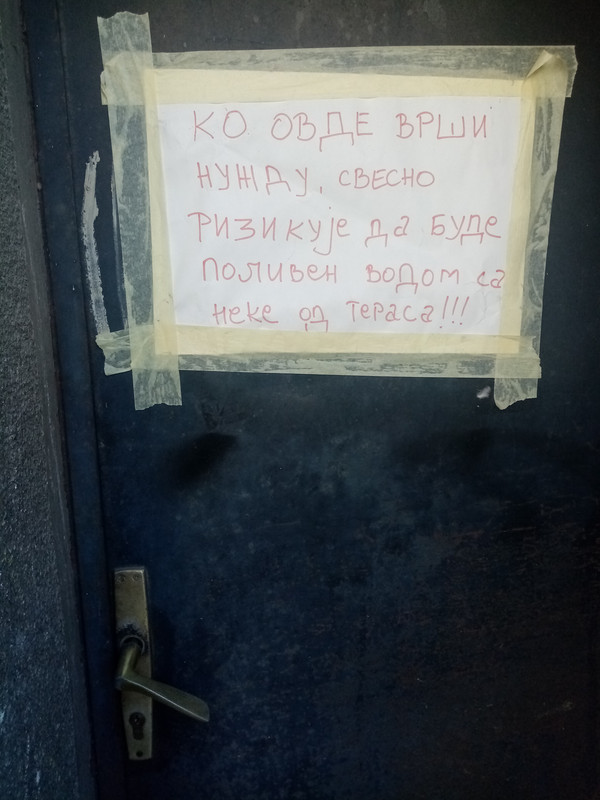 КО ОВДЕ ВРШИ
НУЖДУ, СВЕСНО
РИЗИКУЈЕ ДА БУДЕ
ПОЛИВЕН ВОДОМ СА
НЕКЕ ОД ТЕРАСА!!!